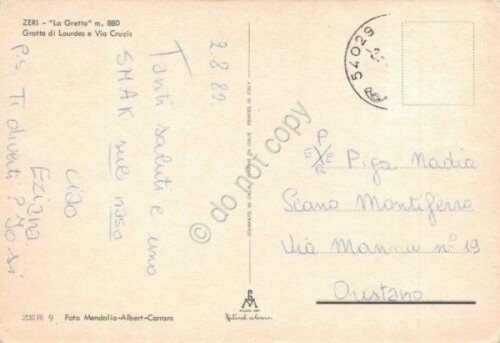 ZERI - "La Gretta" m. 880
Grotta di Lourdes e Via Crucis
2.8.82
Tanti saluti e uno
SMAK sul naso
ciao
Eziana
p.s Ti diverti? Io sì
ZER 9 Foto Mendolia-Albert-Carrara
STAMPATO IN ITALIA PRINTED IN ITALY
54029
Piga Nadia
Scano Montiferro
Via nº 19
Oristano
© do not copy